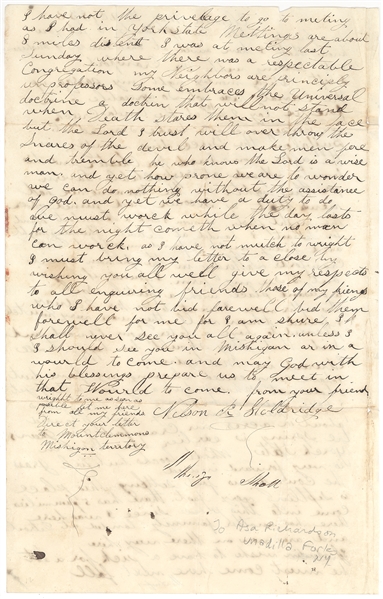 I have not the privelage to go to meting
as I had in York state Meetings are about
8 miles distent I was at meting last
Sunday where there was a respectable
Congregation my Neighbors are princiely
unprofessors Some embraces the Universal
doctrine a doctrin that will not stand
when Death stares them in the face
but the Lord I trust will over throw the
snares of the devil and make men pure
and humble he who knows the Lord is a wise
man. and yet how prone we are to wonder
we can do nothing without the assistance
of God. and yet we have a duty to do
we must worck while the day lasts
for the night cometh when no man
can worck. as I have not mutch to wright
I must bring my letter to a close by
wishing you all well give my respects
to all enquiring friends those of my friends
who I have not bid farewell bid them
farewell for me for I am shure I
shall never see you all again unless I
I should see you in Michigan or in a
world to come. and may God with
his blessings prepare us to meet in
that World to come. from your friend
Nelson Holdridge
wright to me as soon as
posible let me here
from all my friends
Direct your letter
to Mountclemons
Mishigon Territory
To Asa Richardson
Unadilla Forks
NY